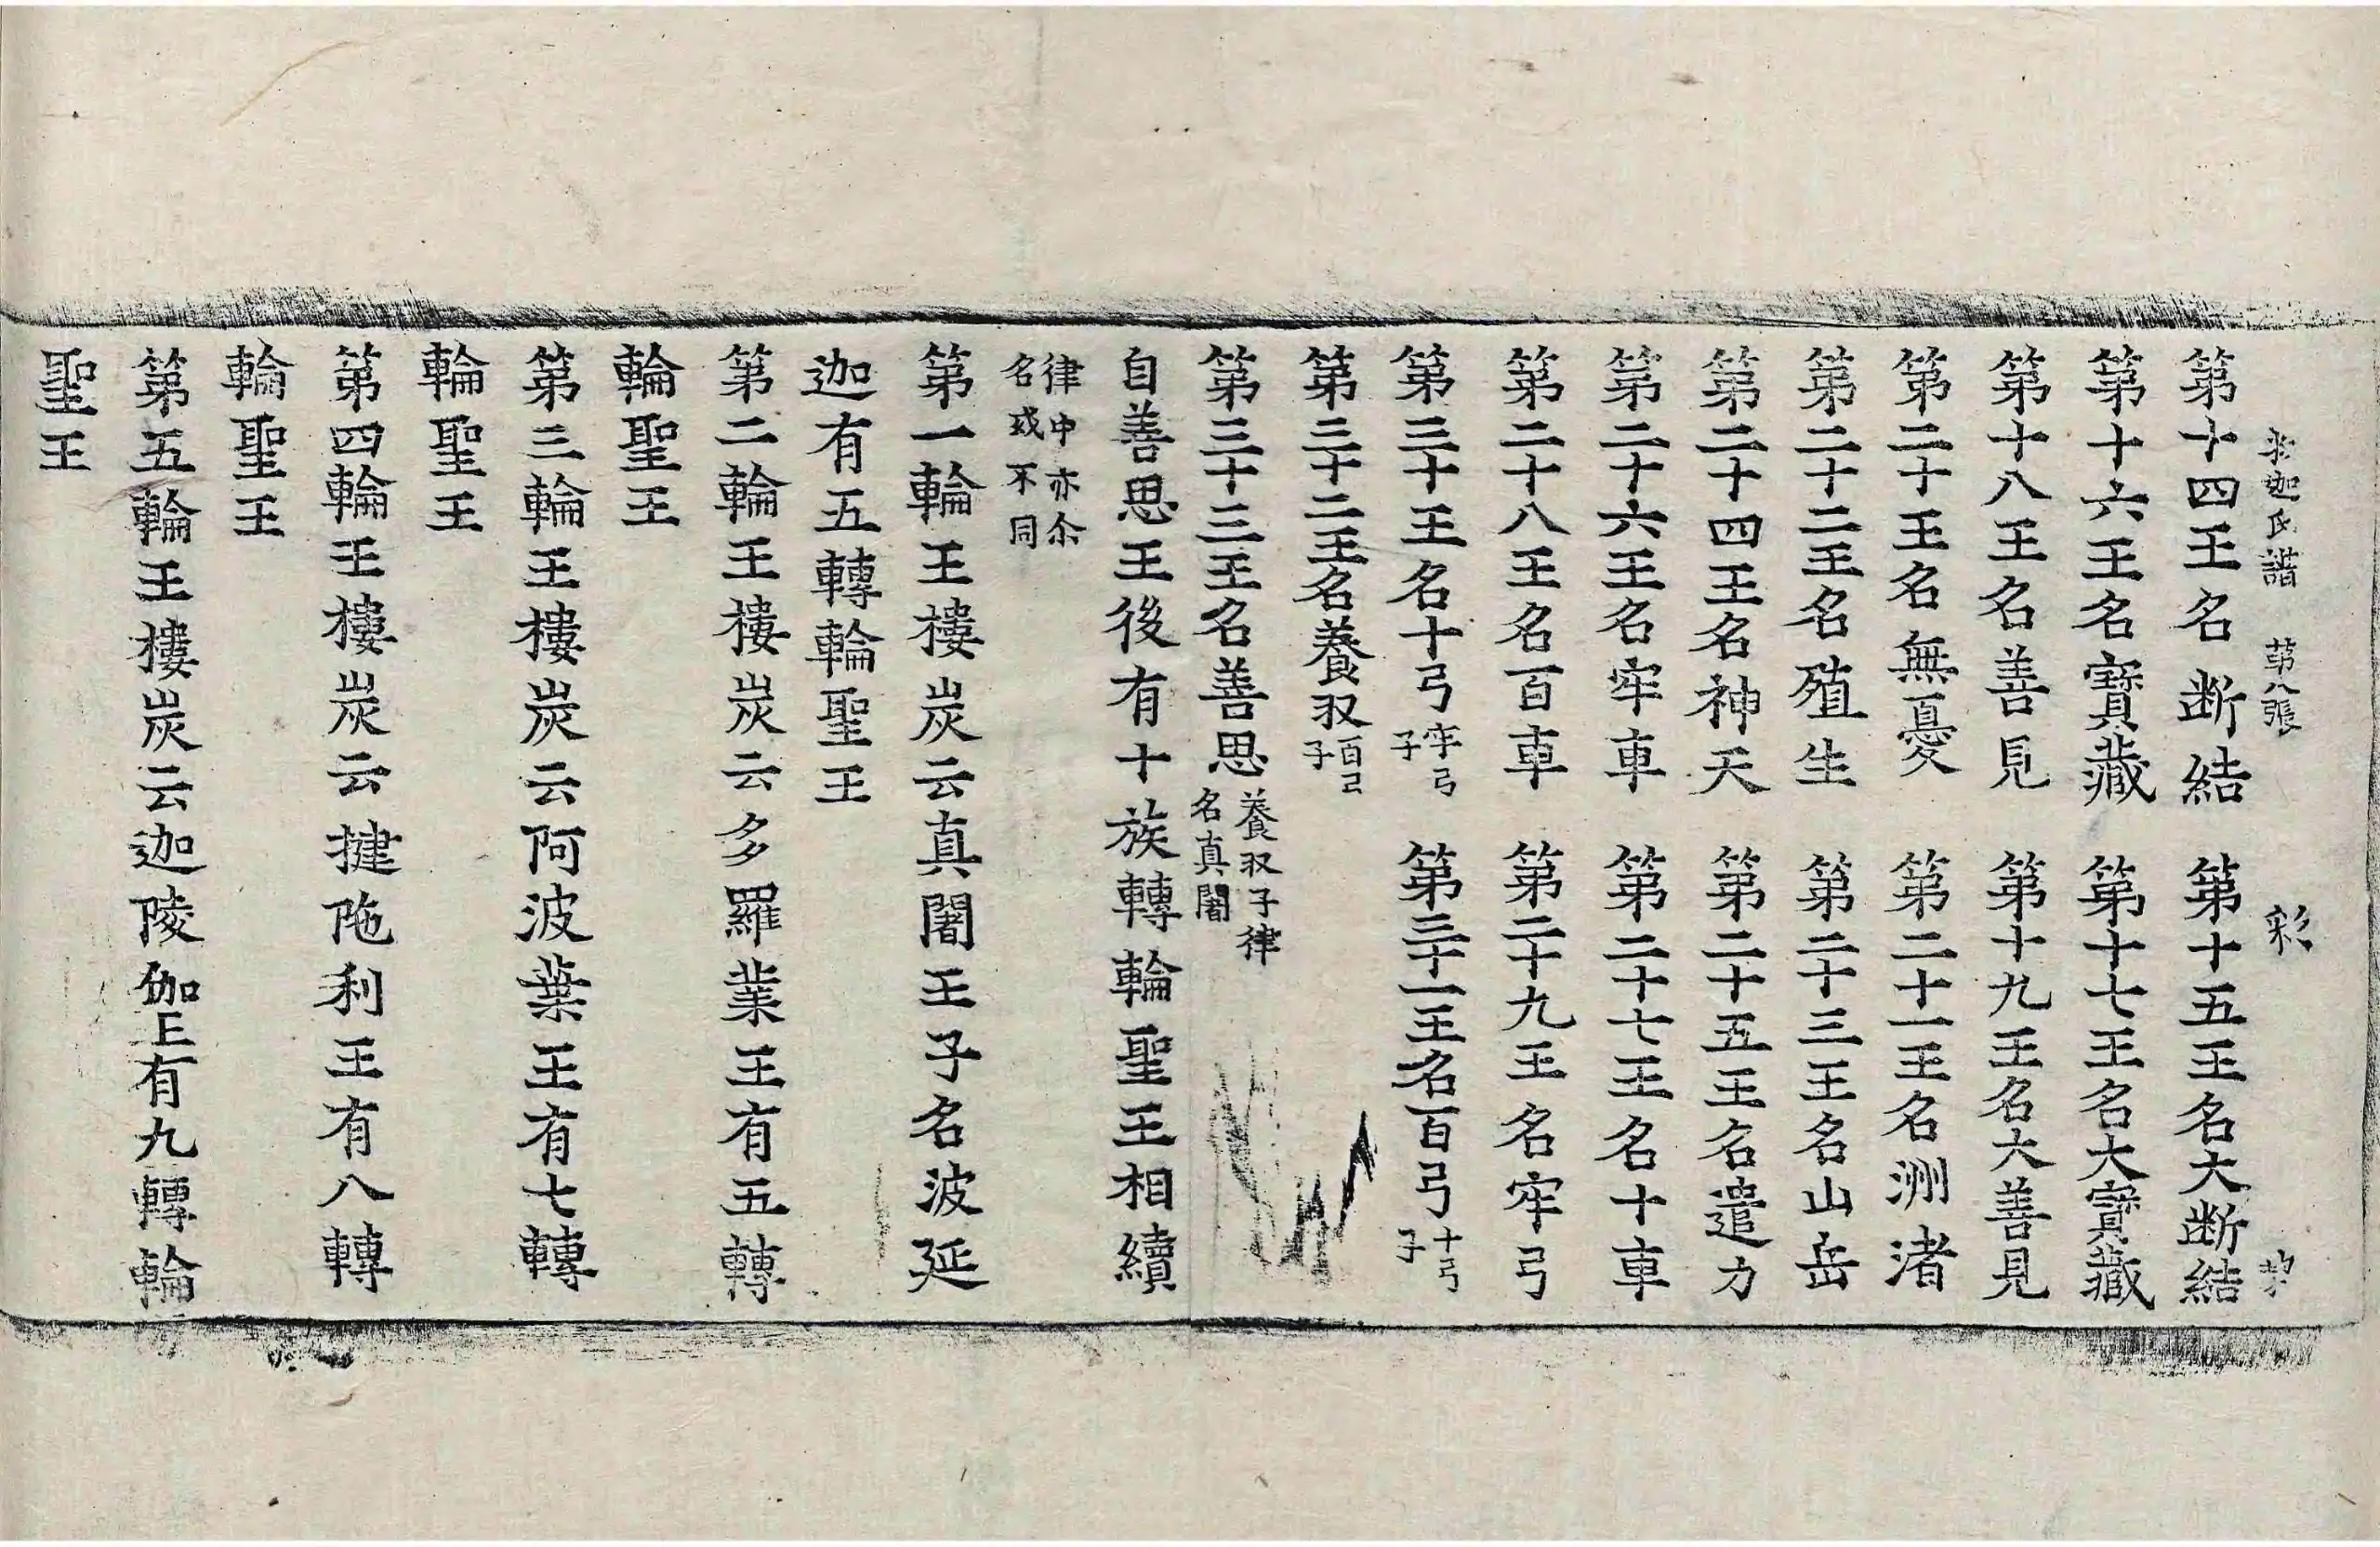 釋迦氏譜 第八張 彩
第十四王名断結 第十五王名大断結
第十六王名寶藏 第十七王名大寶藏
第十八王名善見 第十九王名大善見
第二十王名無憂 第二十一王名洲渚
第二十二王名殖生 第二十三王名山岳
第二十四王名神天 第二十五王名遣力
第二十六王名牢車 第二十七王名十車
第二十八王名百車 第二十九王名牢弓
第三十王名十弓牢弓子 第三十一王名百弓十弓子
第三十二王名養𭕄百弓子
第三十三王名善思養𭕄子律名真闍
自善思王後有十族轉輪聖王相續
律中亦尒名或不同
第一輪王樓炭云真闍王子名波延
迦有五轉輪聖王
第二輪王樓炭云多羅業王有五轉
輪聖王
第三輪王樓炭云阿波葉王有七轉
輪聖王
第四輪王樓炭云揵陁利王有八轉
輪聖王
第五輪王樓炭云迦陵伽王有九轉輪
聖王